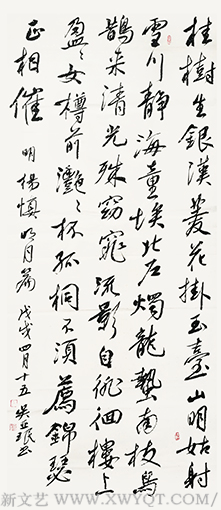 桂樹生銀漢菱花掛玉臺山明姑射
雪川靜海童埃北户燭龍蟄南枝烏
鵲來清光殊窈窕流影自徘徊樓上
盈〻女樽前灧〻杯孤桐不須薦錦瑟
正相催 明楊慎明月篇 戊戌四月十五
新文艺 / WWW.XWYQT.COM /